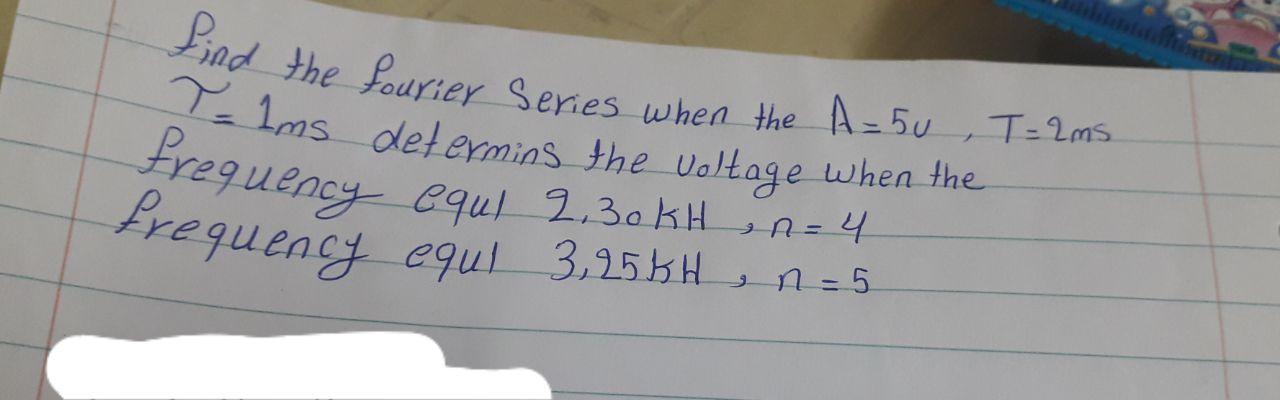 find the fourier Series when the A=5v, T=2ms
τ=1ms determins the voltage when the
frequency equl 2,30kH, n=4
frequency equl 3,25kH, n=5